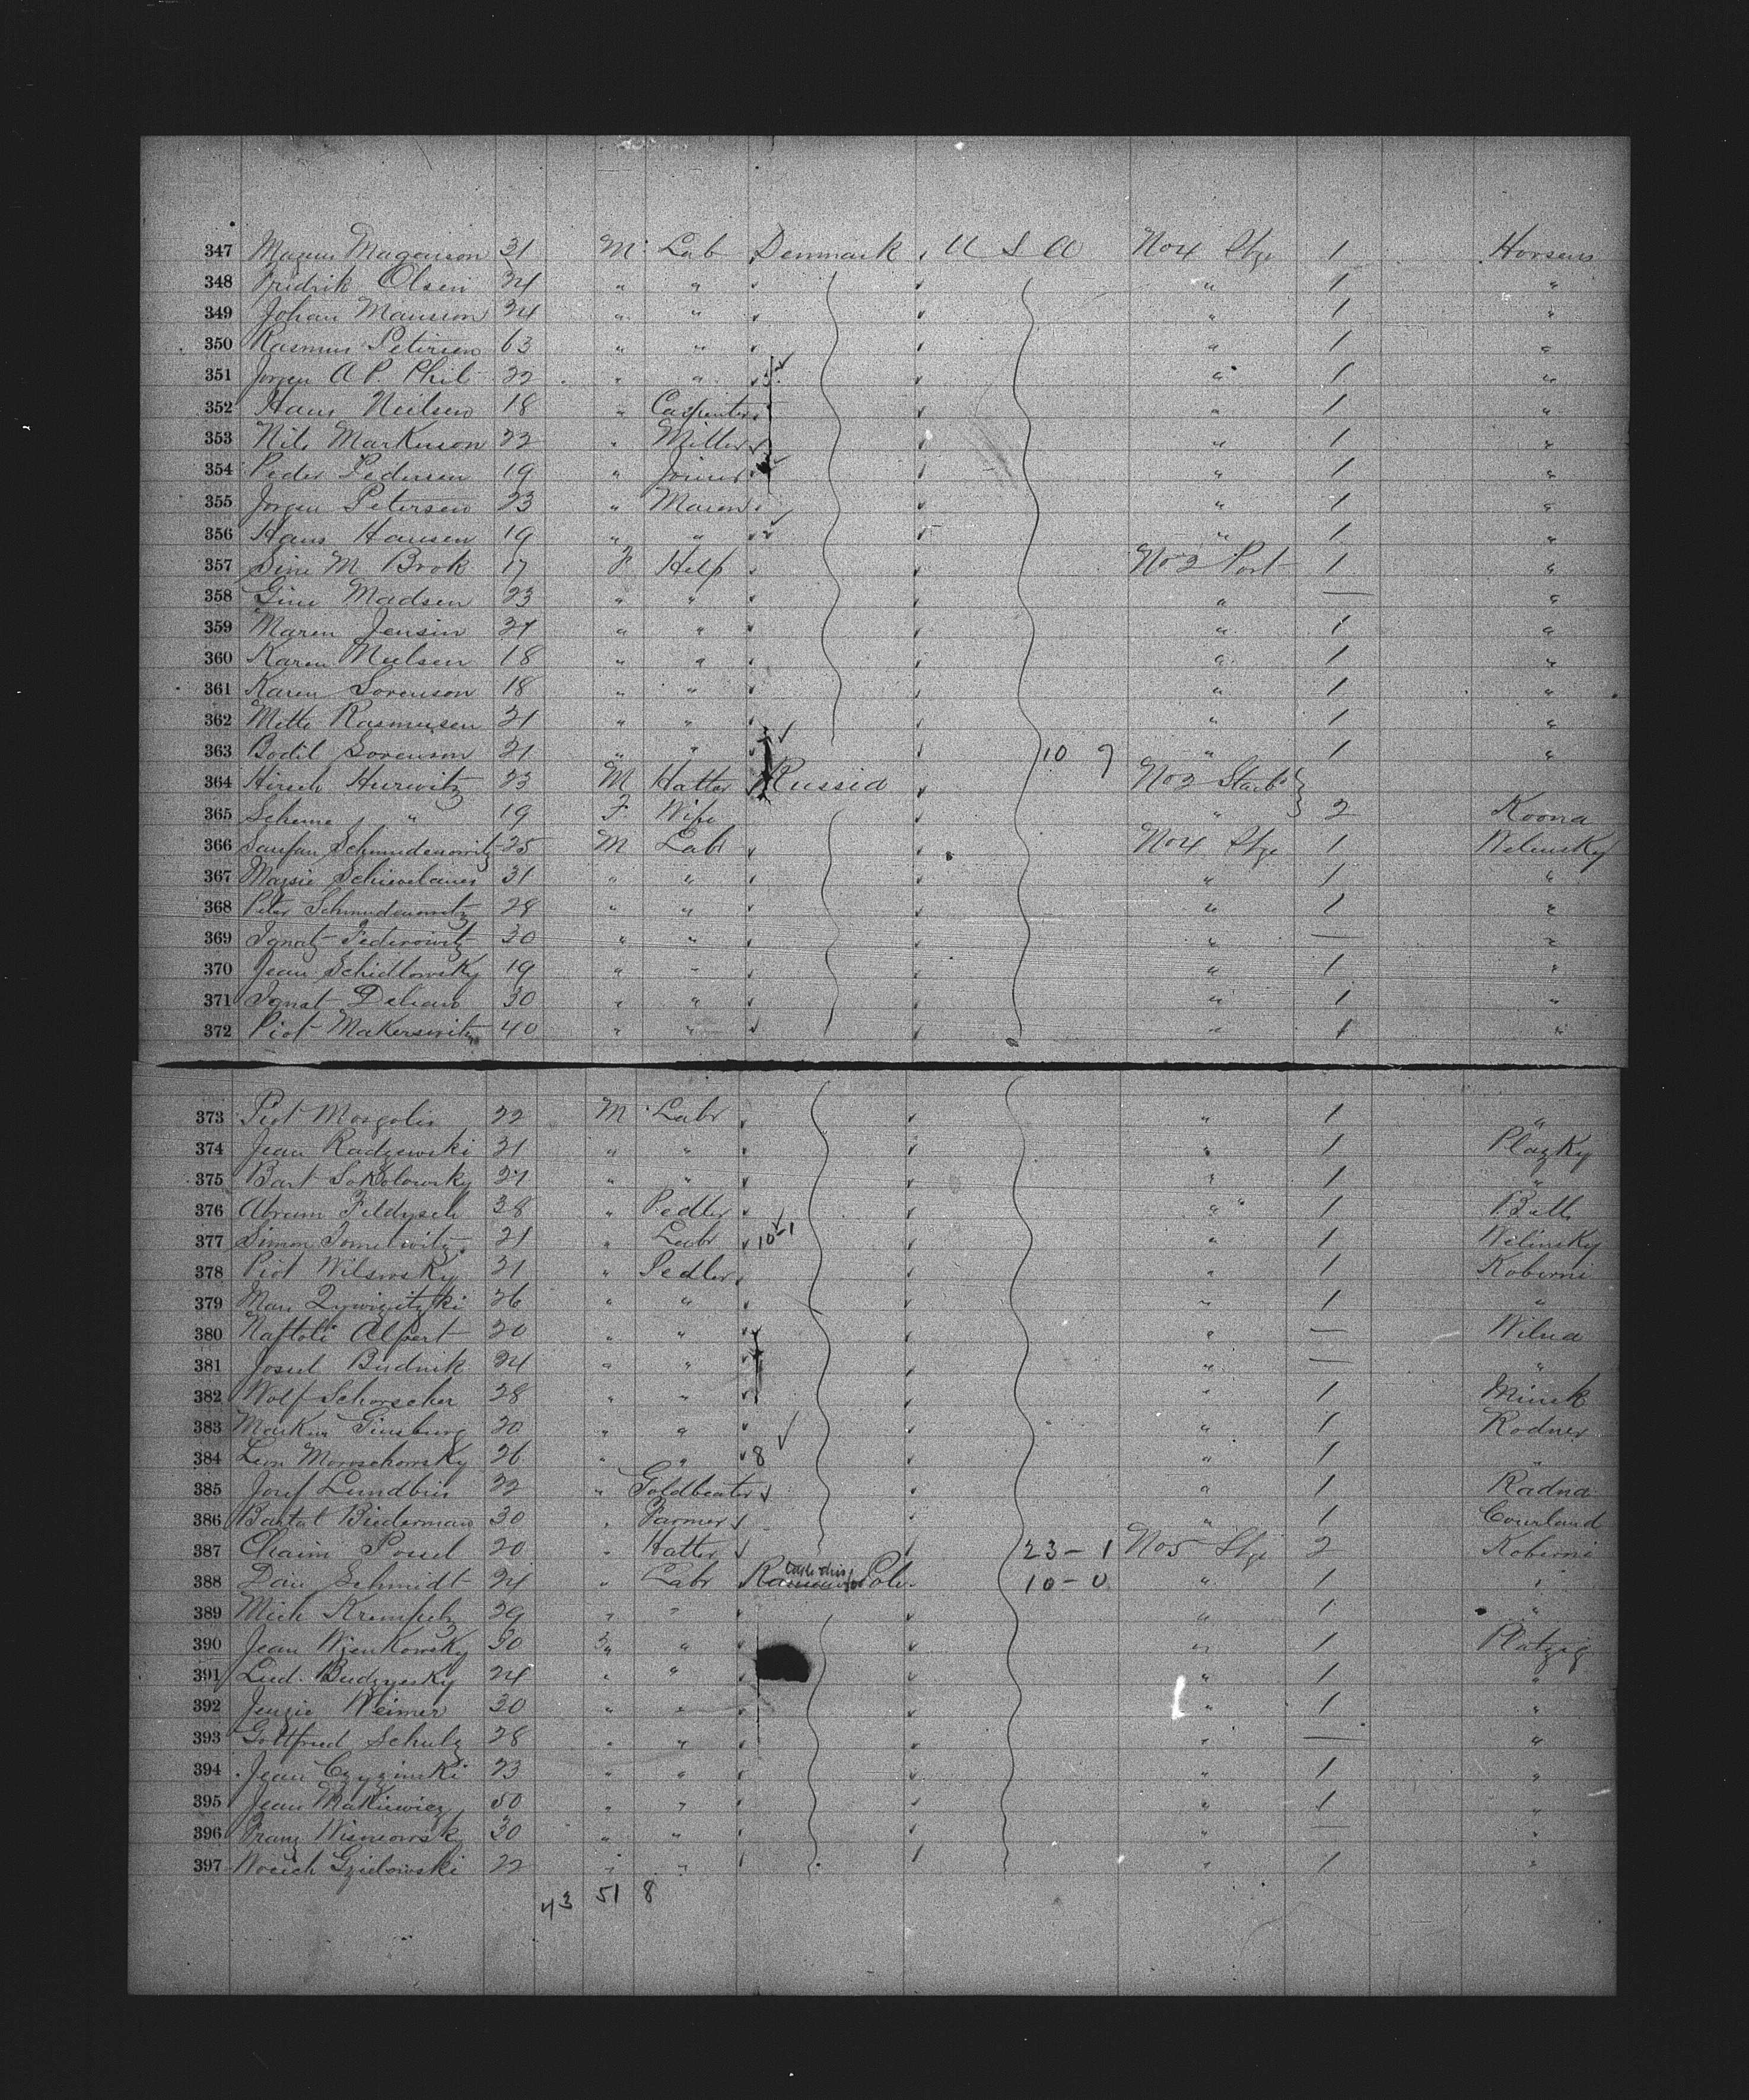 347 Magnus Magenson 31 M Lab Denmark U S A No 4 Stge 1 Horsens
348 Fredrik Olsen 24 " " " 1 "
349 Johan Mansson 24 " " " 1 "
350 Rasmus Petersen 63 " " " 1 "
351 Jorgen A P. Phil 22 " " " 1 "
352 Hans Neilsen 18 " Carpenter " 1 "
353 Nils Markuson 22 " Miller " 1 "
354 Peder Pedersen 19 " Joiner " 1 "
355 Jorgen Petersen 23 " Mason " 1 "
356 Hans Hansen 19 " " " 1 "
357 Sine M Brok 17 F Help No 2 Port 1 "
358 Gine Madsen 23 " " " — "
359 Maren Jensin 21 " " " 1 "
360 Karen Neelsen 18 " " " 1 "
361 Karen Sorenson 18 " " " 1 "
362 Mette Rasmusen 21 " " " 1 "
363 Bodil Sorenson 21 " " 10 7 " 1 "
364 Hirsch Hurwitz 23 M Hatter Russia No 2 Starb
365 Scheme " 19 F Wife " 2 Koona
366 Schmidenowitz 25 M Labr No 4 Stge 1 Welinsky
367 31 " " " 1 "
368 Peter Schmudenowitz 28 " " " 1 "
369 Ignatz Federowitz 30 " " " — "
370 Jean Schidlowsky 19 " " " 1 "
371 Ignat 30 " " " 1 "
372 Piot Makerswitz 40 " " " 1 "
373 Piot Mosgolis 22 M Labr " 1 "
374 Jean Radzewski 21 " " " 1 Plazky
375 Bart Sokolowsky 27 " " " 1 "
376 Abram Feldysch 38 " Pedler " 1 Balls
377 Simon 21 " Labr 10-1 " 1 Welinsky
378 Piot Wilswsky 31 " Pedler " 1 Koberni
379 Man 26 " " " 1 "
380 Naftoli Alpert 20 " " " — Wilna
381 Josel Budnik 24 " " " — "
382 Wolf Schorscher 28 " " " 1 Minsk
383 Markus Ginsburg 20 " " " 1 Rodner
384 Leon Moroschowsky 26 " " 8 " 1 "
385 Josef Lundbrin 22 " Goldbeater " 1 Radna
386 Biederman 30 " Farmer " 1 Courland
387 Chaim Possel 20 " Hatter 23-1 No 5 Stge 2 Koberni
388 Dan Schmidt 24 " Labr Pole 10-0 " 1 "
389 Mich 29 " " " 1 "
390 Jean Wienkowsky 30 " " " 1 Platzig
391 Lud. Budzynsky 24 " " " 1 "
392 Weimer 30 " " " 1 "
393 Gottfried Schulz 28 " " " — "
394 Jean Czyzinski 23 " " " 1 "
395 Jean Makiewicz 50 " " " 1 "
396 Franz 30 " " " — "
397 22 " " " 1 "
43 51 8